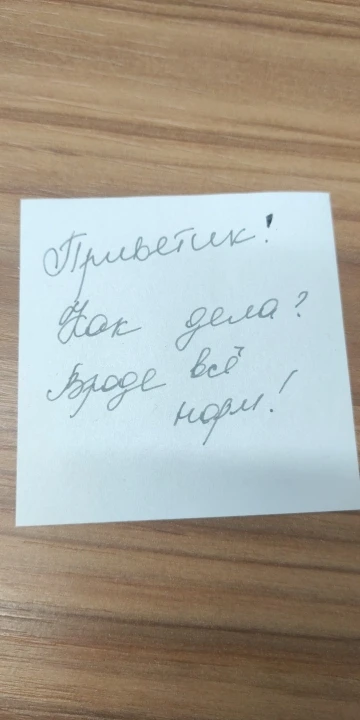 Приветик!
Как дела?
Вроде всё
норм!